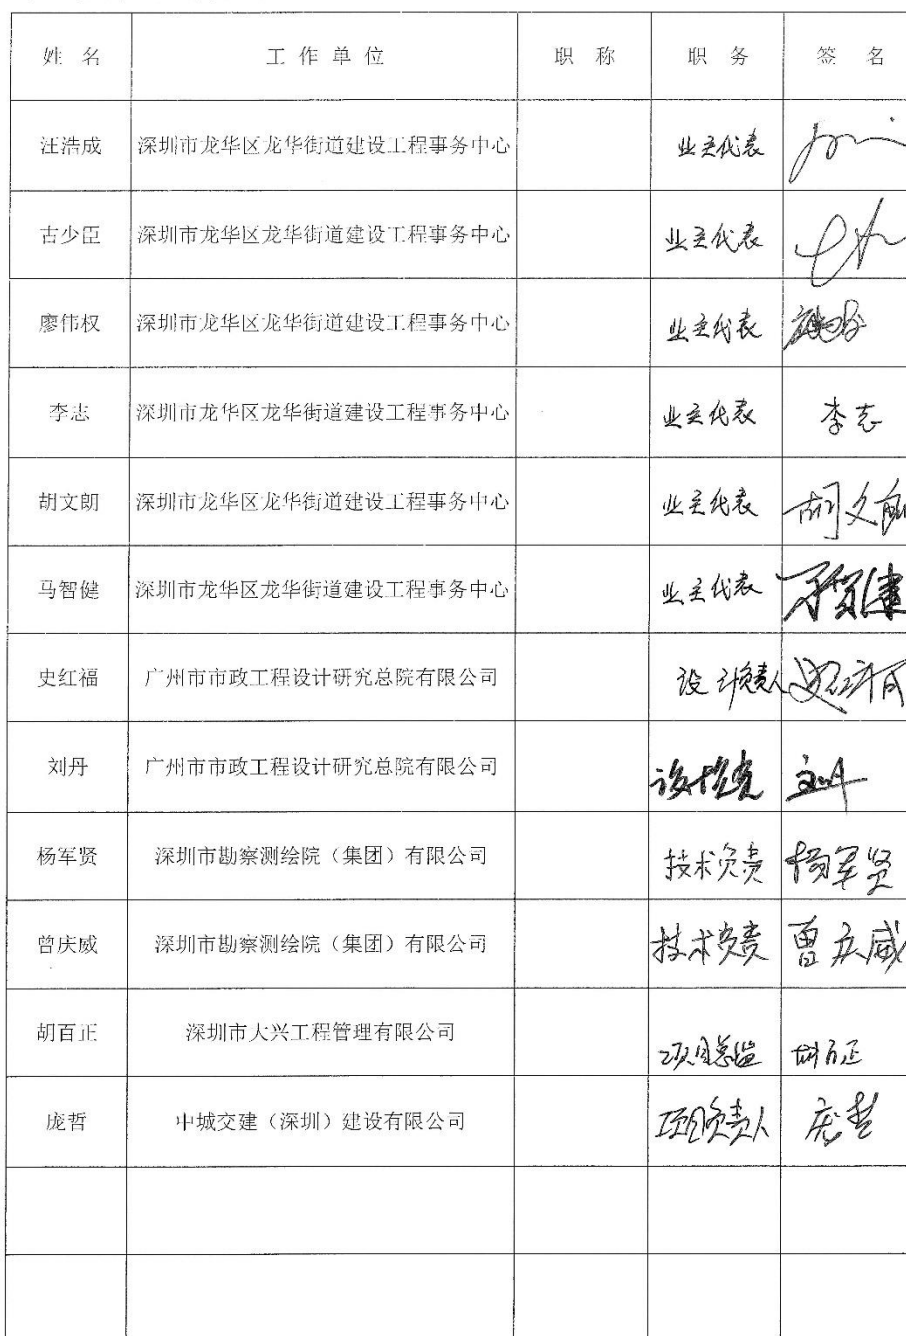 姓 名 工 作 单 位 职 称 职 务 签 名
汪浩成 深圳市龙华区龙华街道建设工程事务中心 业主代表
古少臣 深圳市龙华区龙华街道建设工程事务中心 业主代表
廖伟权 深圳市龙华区龙华街道建设工程事务中心 业主代表
李志 深圳市龙华区龙华街道建设工程事务中心 业主代表 李志
胡文朗 深圳市龙华区龙华街道建设工程事务中心 业主代表 胡文朗
马智健 深圳市龙华区龙华街道建设工程事务中心 业主代表
史红福 广州市市政工程设计研究总院有限公司 设计负责人
刘丹 广州市市政工程设计研究总院有限公司 刘丹
杨军贤 深圳市勘察测绘院（集团）有限公司 技术负责 杨军贤
曾庆威 深圳市勘察测绘院（集团）有限公司 技术负责 曾庆威
胡百正 深圳市大兴工程管理有限公司 项目总监 胡百正
庞哲 中城交建（深圳）建设有限公司 项目负责人 庞哲